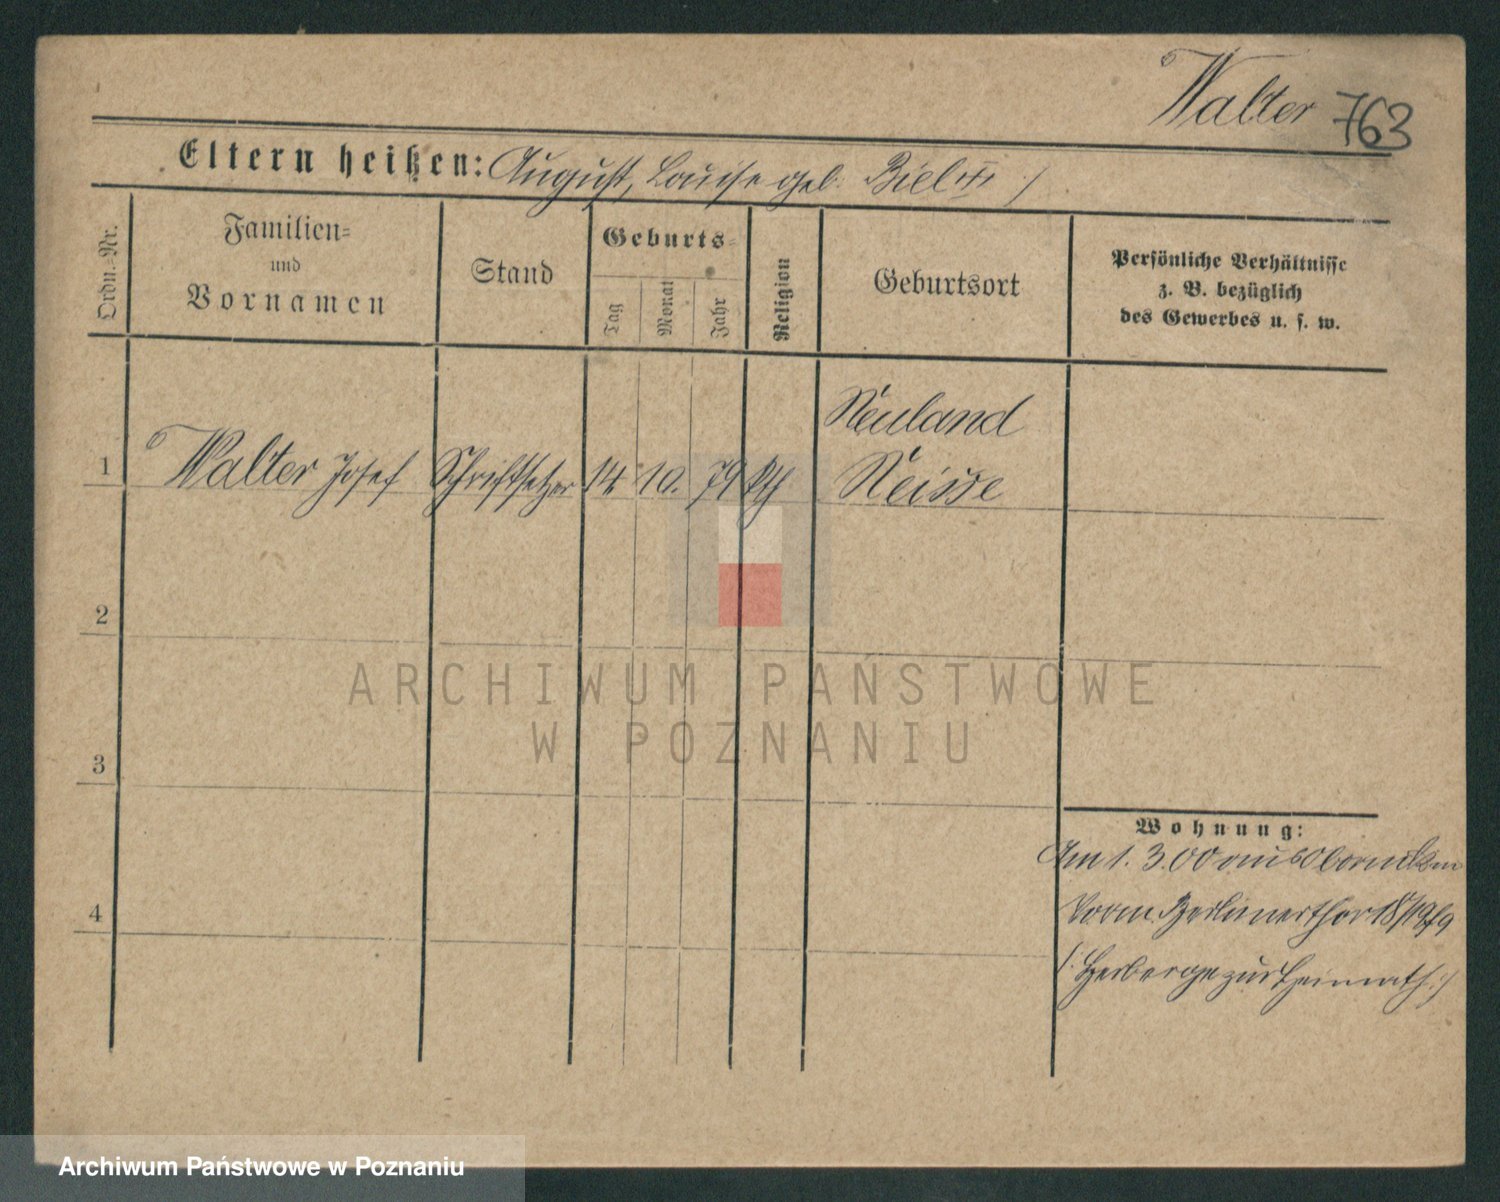 Walter 763
Eltern heißen: August, Louise geb.
Ordn.-Nr.
Familien-
und
Vornamen
Stand
Geburts-
Tag
Monat
Jahr
Religion
Geburtsort
Persönliche Verhältnisse
z. B. bezüglich
des Gewerbes u. s. w.
Neuland
1 Walter Josef Schriftsetzer 14 10. 79 kth Neisse
2
3
4
Wohnung:
Am 1. 3. 00 aus
Vorm Berlinerthor 18/19
(: Herberge zur Heimath :)
ARCHIWUM PAŃSTWOWE
W POZNANIU
Archiwum Państwowe w Poznaniu